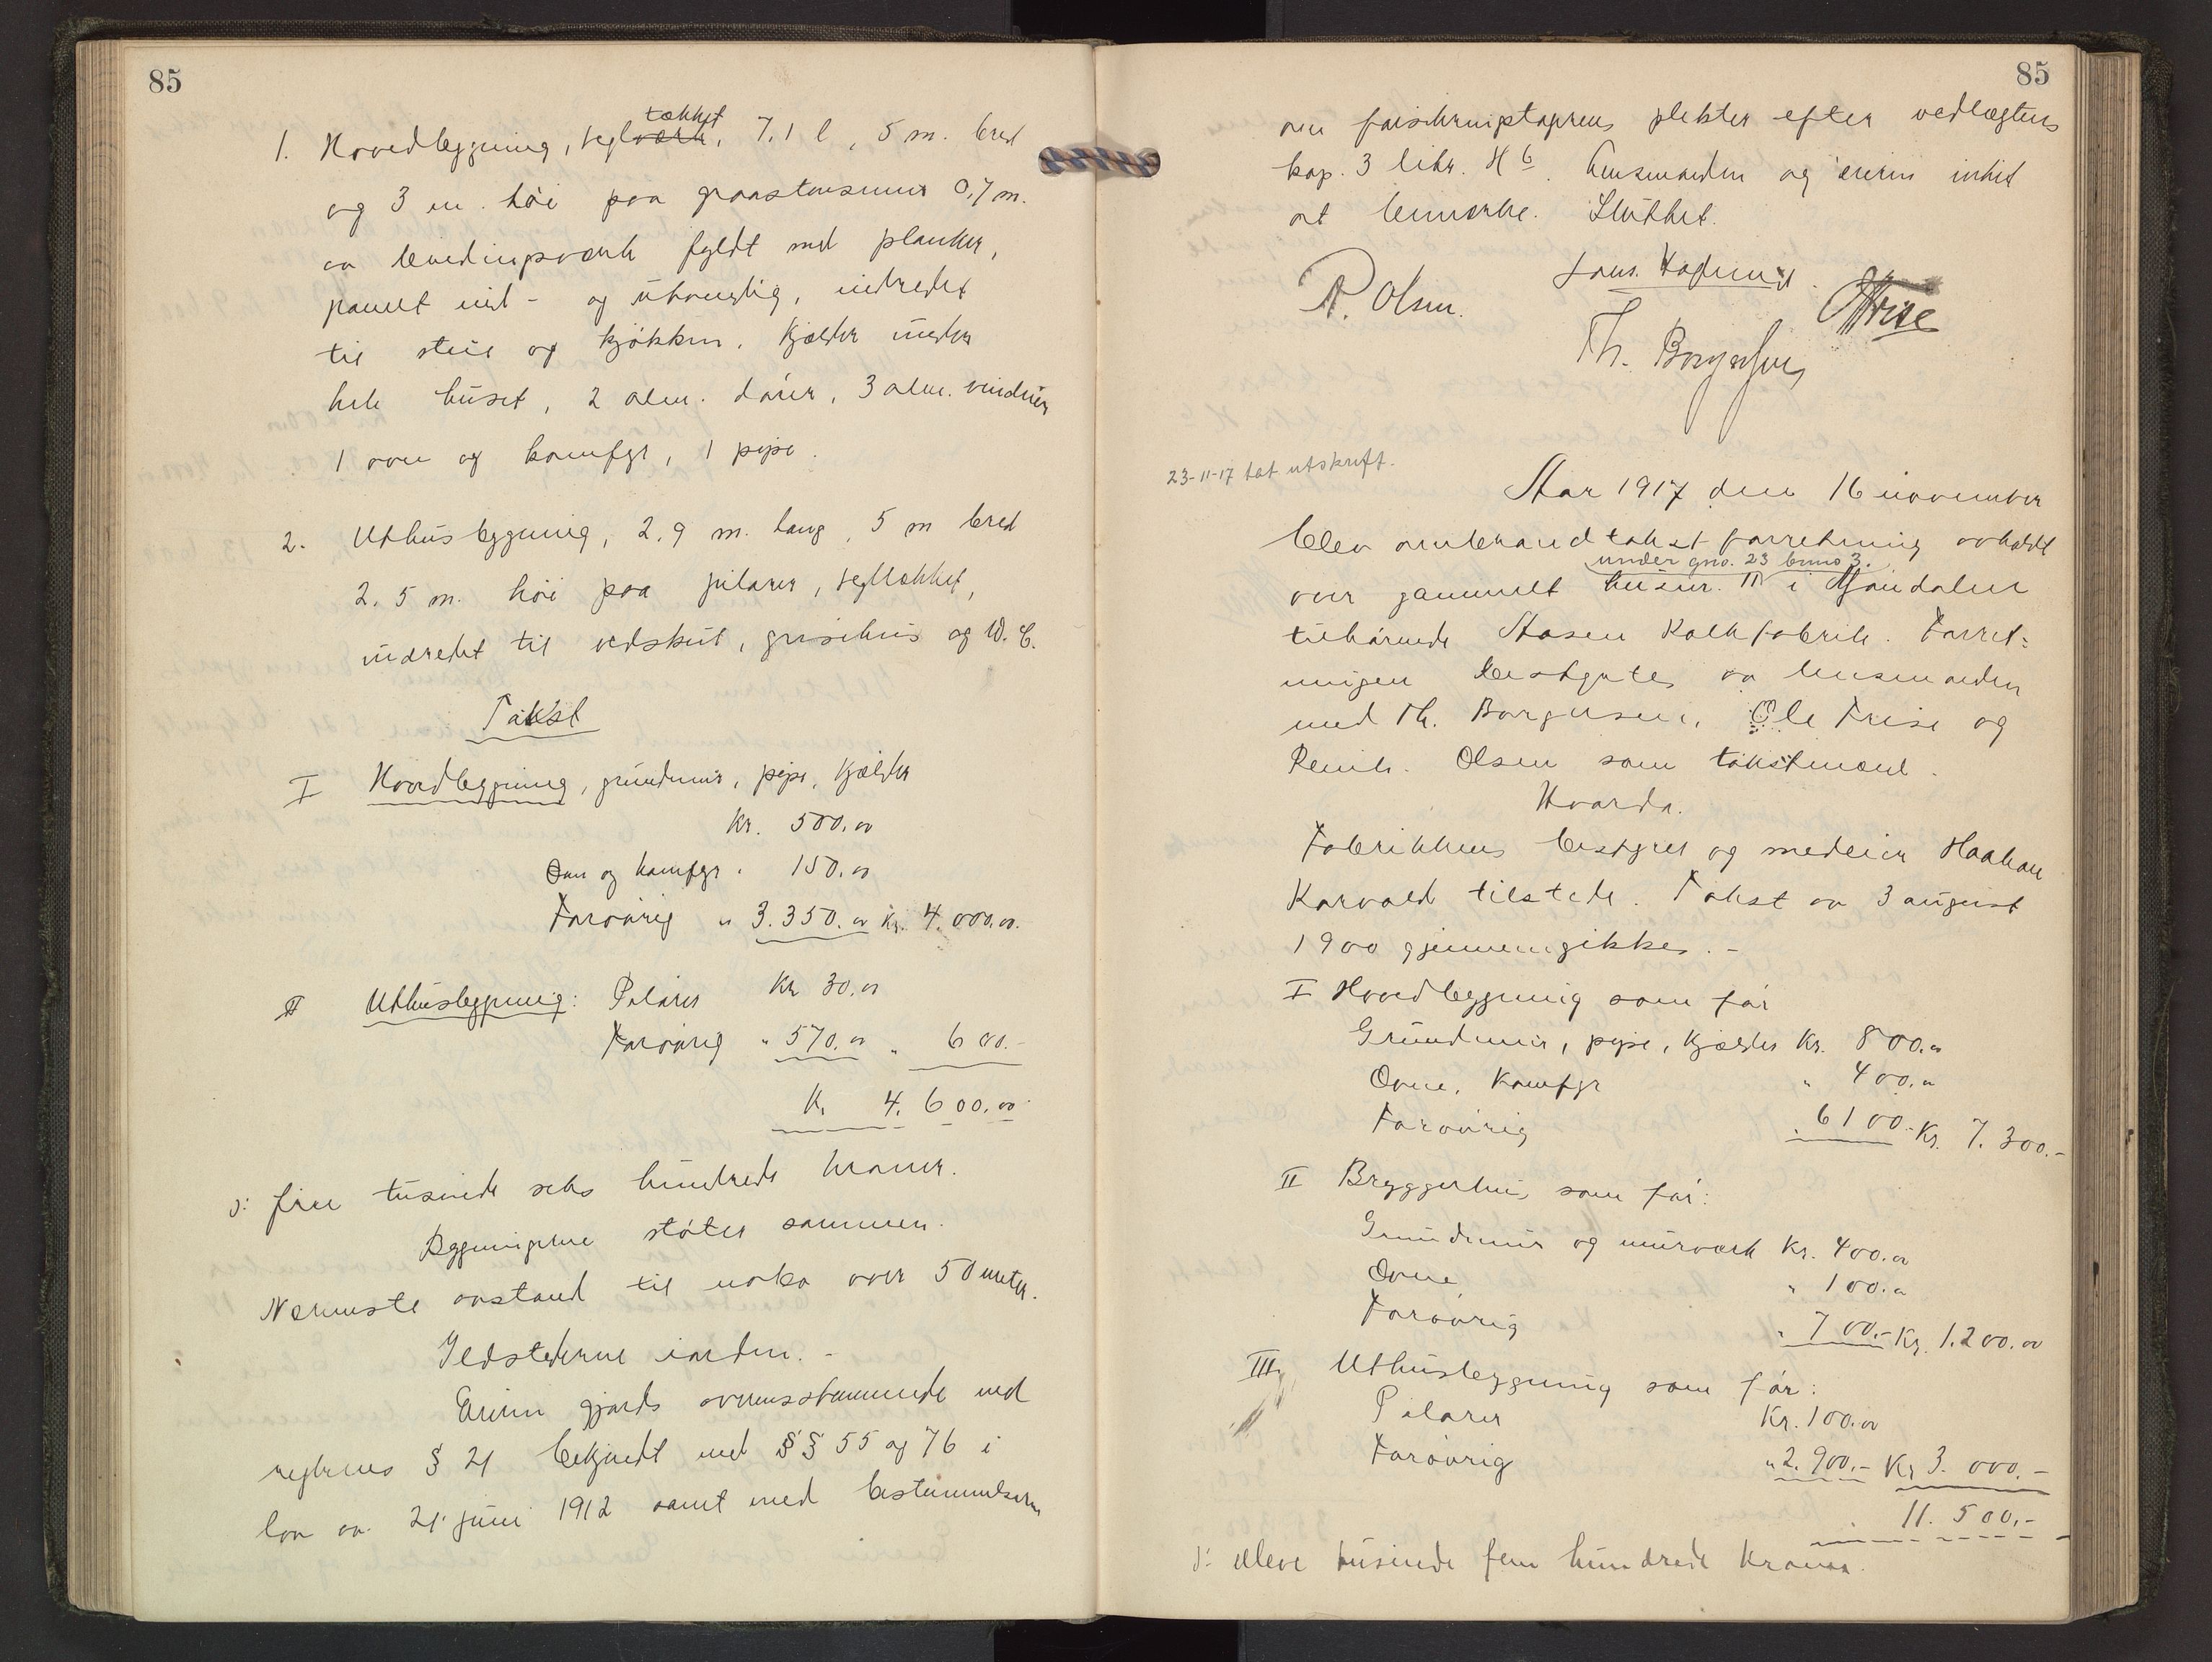 85
1. Hovedbygning, tegl værk, tækket 7.1 l, 5 m. bred
og 3 m. høi paa graastensmur 0,7 m.
av bindingsværk fyldt med planker,
panelt ind- og utvendig, indredet
til stue og kjøkken. Kjælder under
hele huset, 2 alm. dører, 3 alm. vinduer
1 ovn og komfyr, 1 pipe.
2. Uthusbygning, 2.9 m. lang, 5 m bred
2.5 m. høi paa pilarer, tegltækket,
indredet til vedskut, grisehus og W.C.
Takst
I Hovedbygning, grundmur, pipe, kjælder
Kr. 500.00
Ovn og komfyr " 150.00
Forøvrig " 3.350.00 Kr. 4.000.00.
II Uthusbygning: Pilarer Kr 30.00
Forøvrig " 570.00 " 600.-
Kr 4.600.00
ɔ: fire tusinde seks hundrede kroner.
Bygningerne støter sammen.
Nærmeste avstand til nabo over 50 meter.
Ildstederne i orden. -
Eieren gjordes overensstemmende med
reglernes § 21 bekjendt med §§ 55 og 76 i
lov av 21 juni 1912 samt med bestemmelserne
85
om forsikringstagerens plikter efter vedtægtens
kap. 3 litr. H 6. Lensmanden og eieren intet
at bemerke. Sluttet.
R. Olsen. Th. Borgersen OFrise
23-11-17 tat utskrift.
Aar 1917 den 16 november
blev ombrandtakst forretning avholdt
under gno. 23 bruno 3.
over gammelt husnr. 11 i Mjøndalen
tilhørende Aasen Kalkfabrik. Forret:
ningen bestyrtes av lensmanden
med Th. Borgersen, Ole Frise og
Reinh. Olsen som takstmænd.
Hvorda.
Fabrikkens bestyrer og medeier Haakon
Korvald tilstede. Takst av 3 august
1900 gjennemgikkes. -
I Hovedbygning som før
Grundmur, pipe, kjælder Kr. 800.00
Ovne, Komfyr " 400.00
Forøvrig " 6100.- Kr. 7.300.-
II Bryggerhus som før:
Grundmur og murværk Kr. 400.00
Ovne " 100.00
Forøvrig " 700.- Kr. 1.200.00
III Uthusbygning som før:
Pilarer Kr. 100.00
Forøvrig " 2.900.- Kr 3.000.-
11.500.-
ɔ: elleve tusinde fem hundrede Kroner.